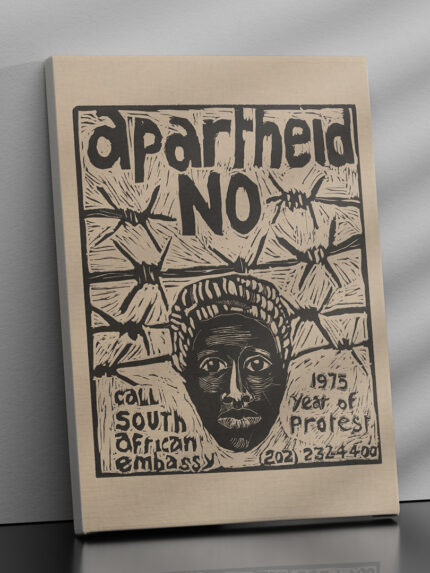 apartheid
NO
call
South
african
embassy
1975
year of
Protest
(202) 2324400